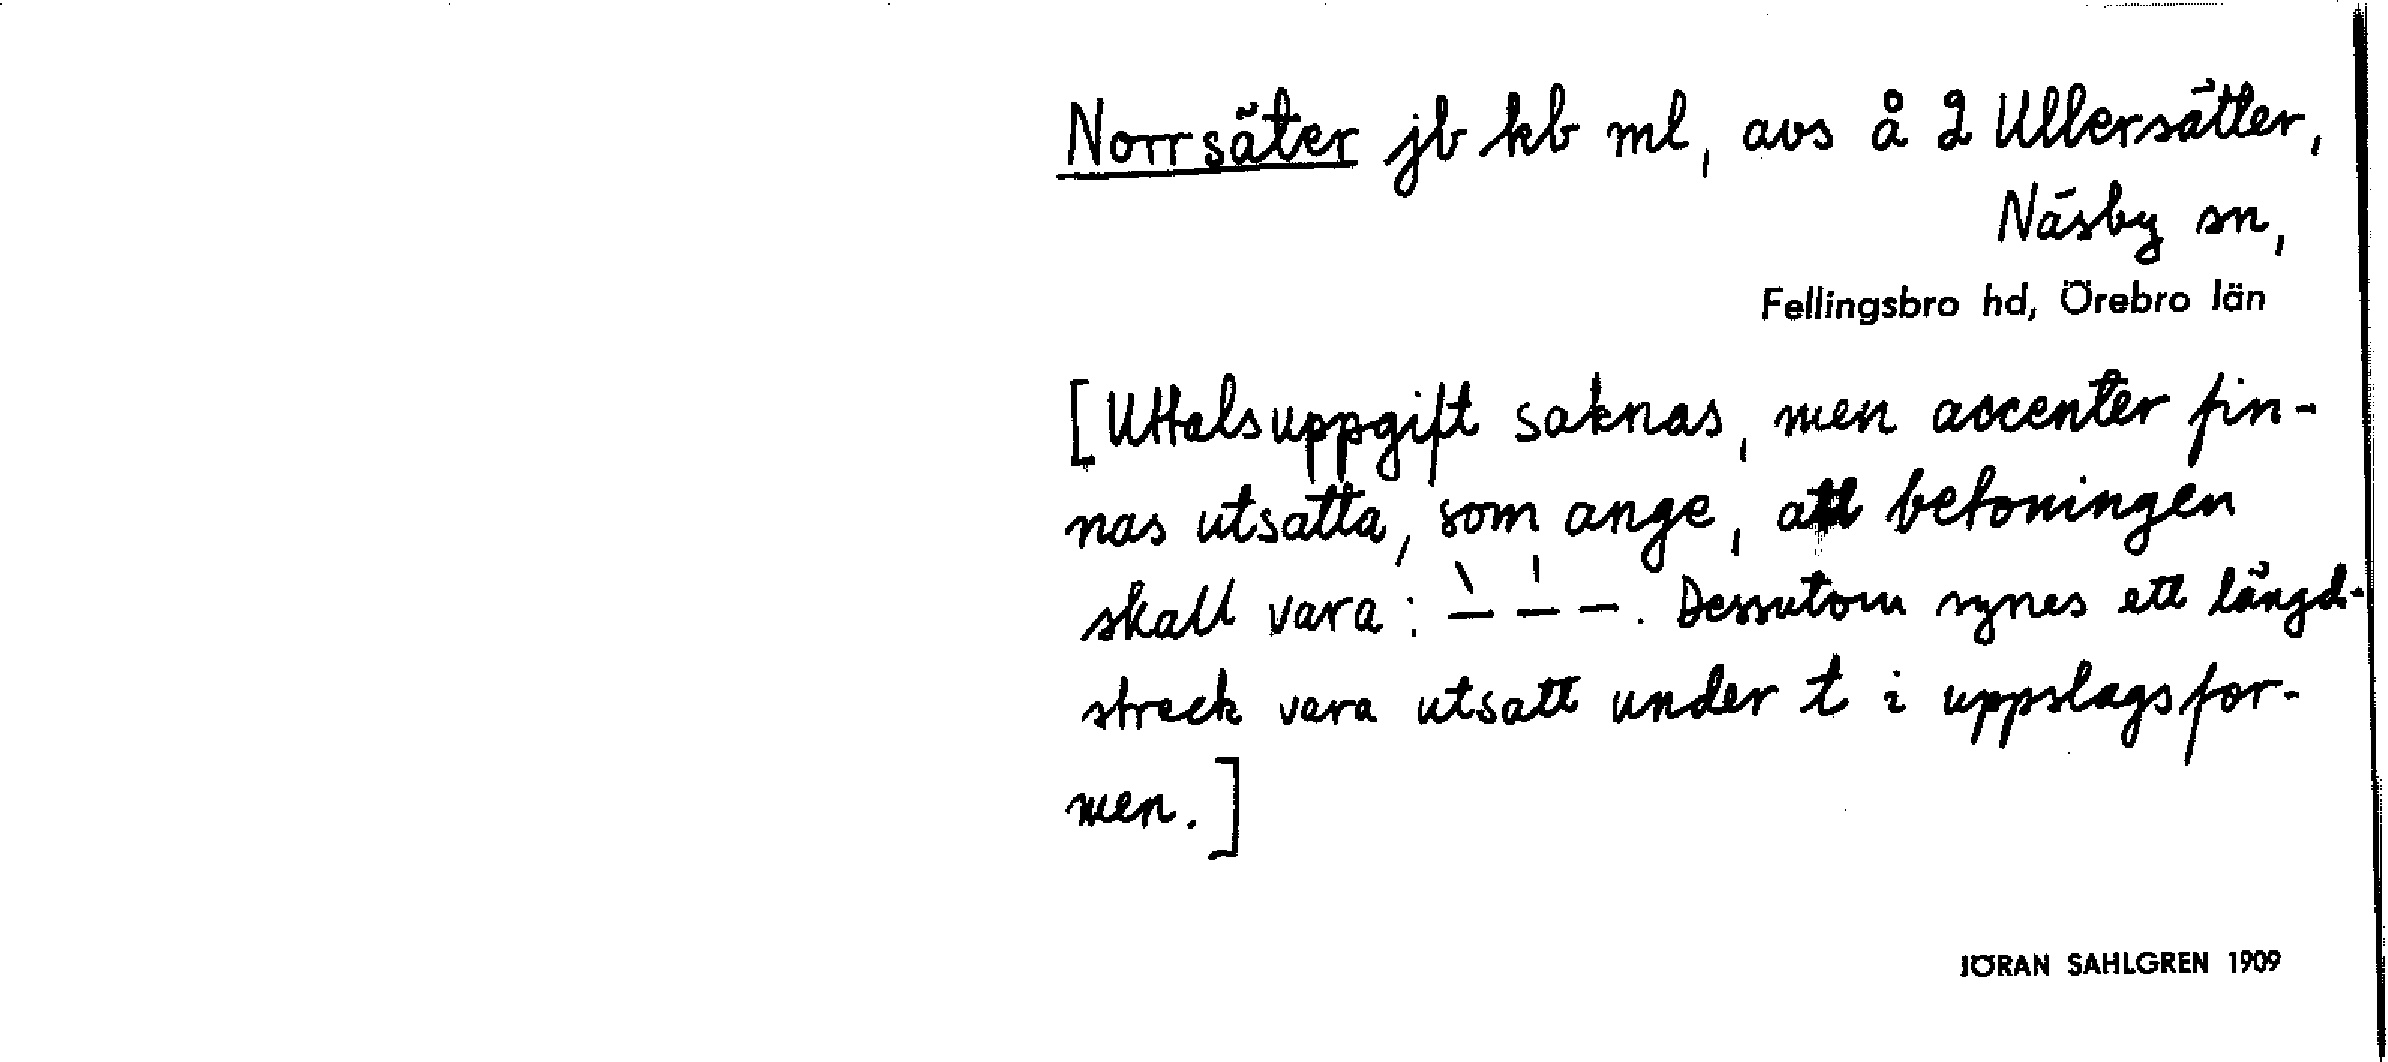 Norrsäter jb kb ml, avs å 2 Ullersätter,
Näsby sn,
Fellingsbro hd, Örebro län
[Uttalsuppgift saknas, men accenter fin-
nas utsatta, som ange, att betoningen
skall vara: `— '— —. Dessutom synes ett längd-
streck vara utsatt under t i uppslagsfor-
men.]
JÖRAN SAHLGREN 1909